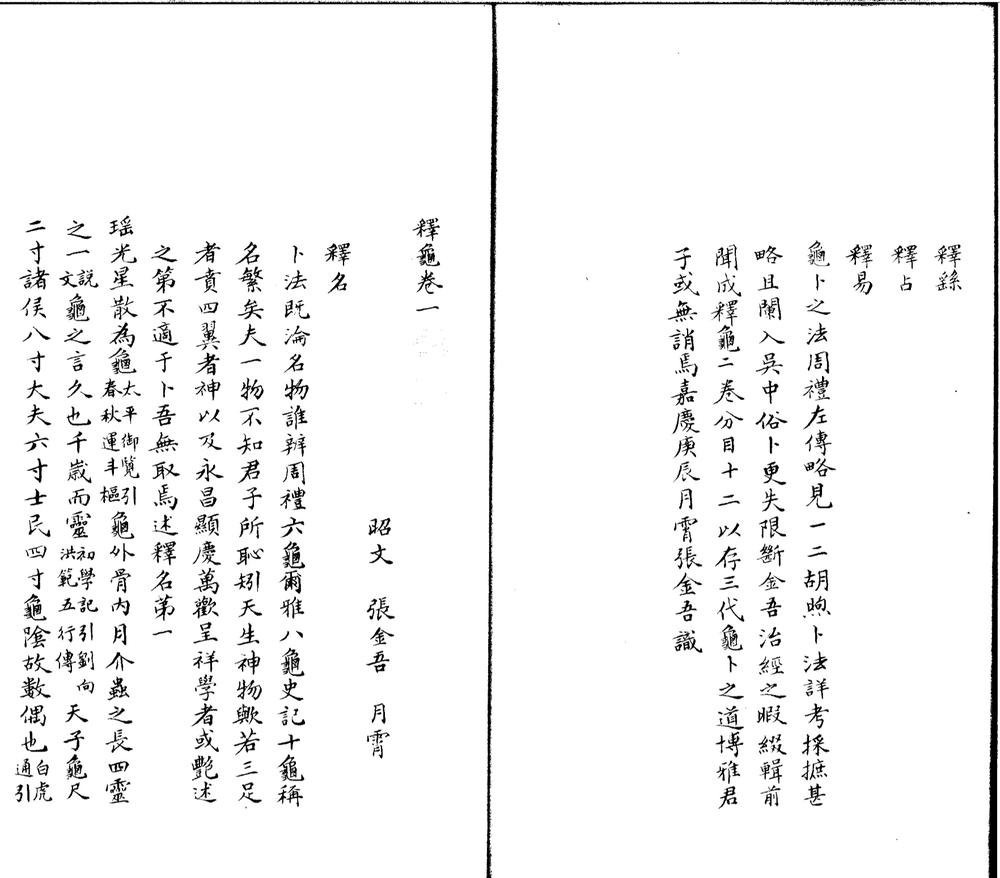 釋繇
釋占
釋易
龜卜之法周禮左傳略見一二胡煦卜法詳考採摭甚
略且闌入吳中俗卜更失限斷金吾治經之暇綴輯前
聞成釋龜二卷分目十二以存三代龜卜之道博雅君
子或無誚焉嘉慶庚辰月霄張金吾識
釋龜卷一
昭文 張金吾 月霄
釋名
卜法既淪名物誰辨周禮六龜爾雅八龜史記十龜稱
名繁矣夫一物不知君子所恥矧天生神物歟若三足
者賁四翼者神以及永昌顯慶萬歡呈祥學者或艷述
之第不適于卜吾無取焉述釋名苐一
瑶光星散為龜太平御覽引春秋運斗樞龜外骨內月介蟲之長四靈
之一説文龜之言久也千歲而靈初學記引劉向洪範五行傳天子龜尺
二寸諸侯八寸大夫六寸士民四寸龜陰故數偶也白虎通引